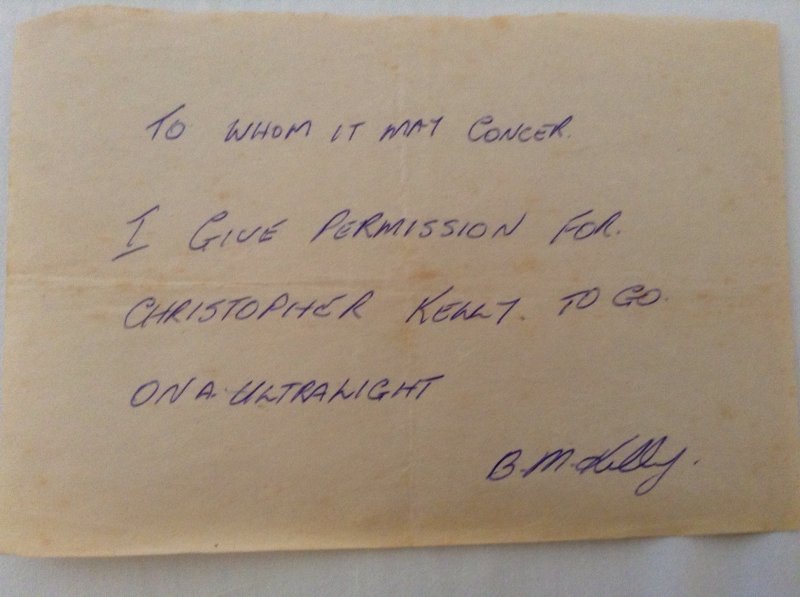 TO WHOM IT MAY CONCER.
I GIVE PERMISSION FOR.
CHRISTOPHER KELLY. TO GO.
ON A ULTRALIGHT
B.M.Kelly.